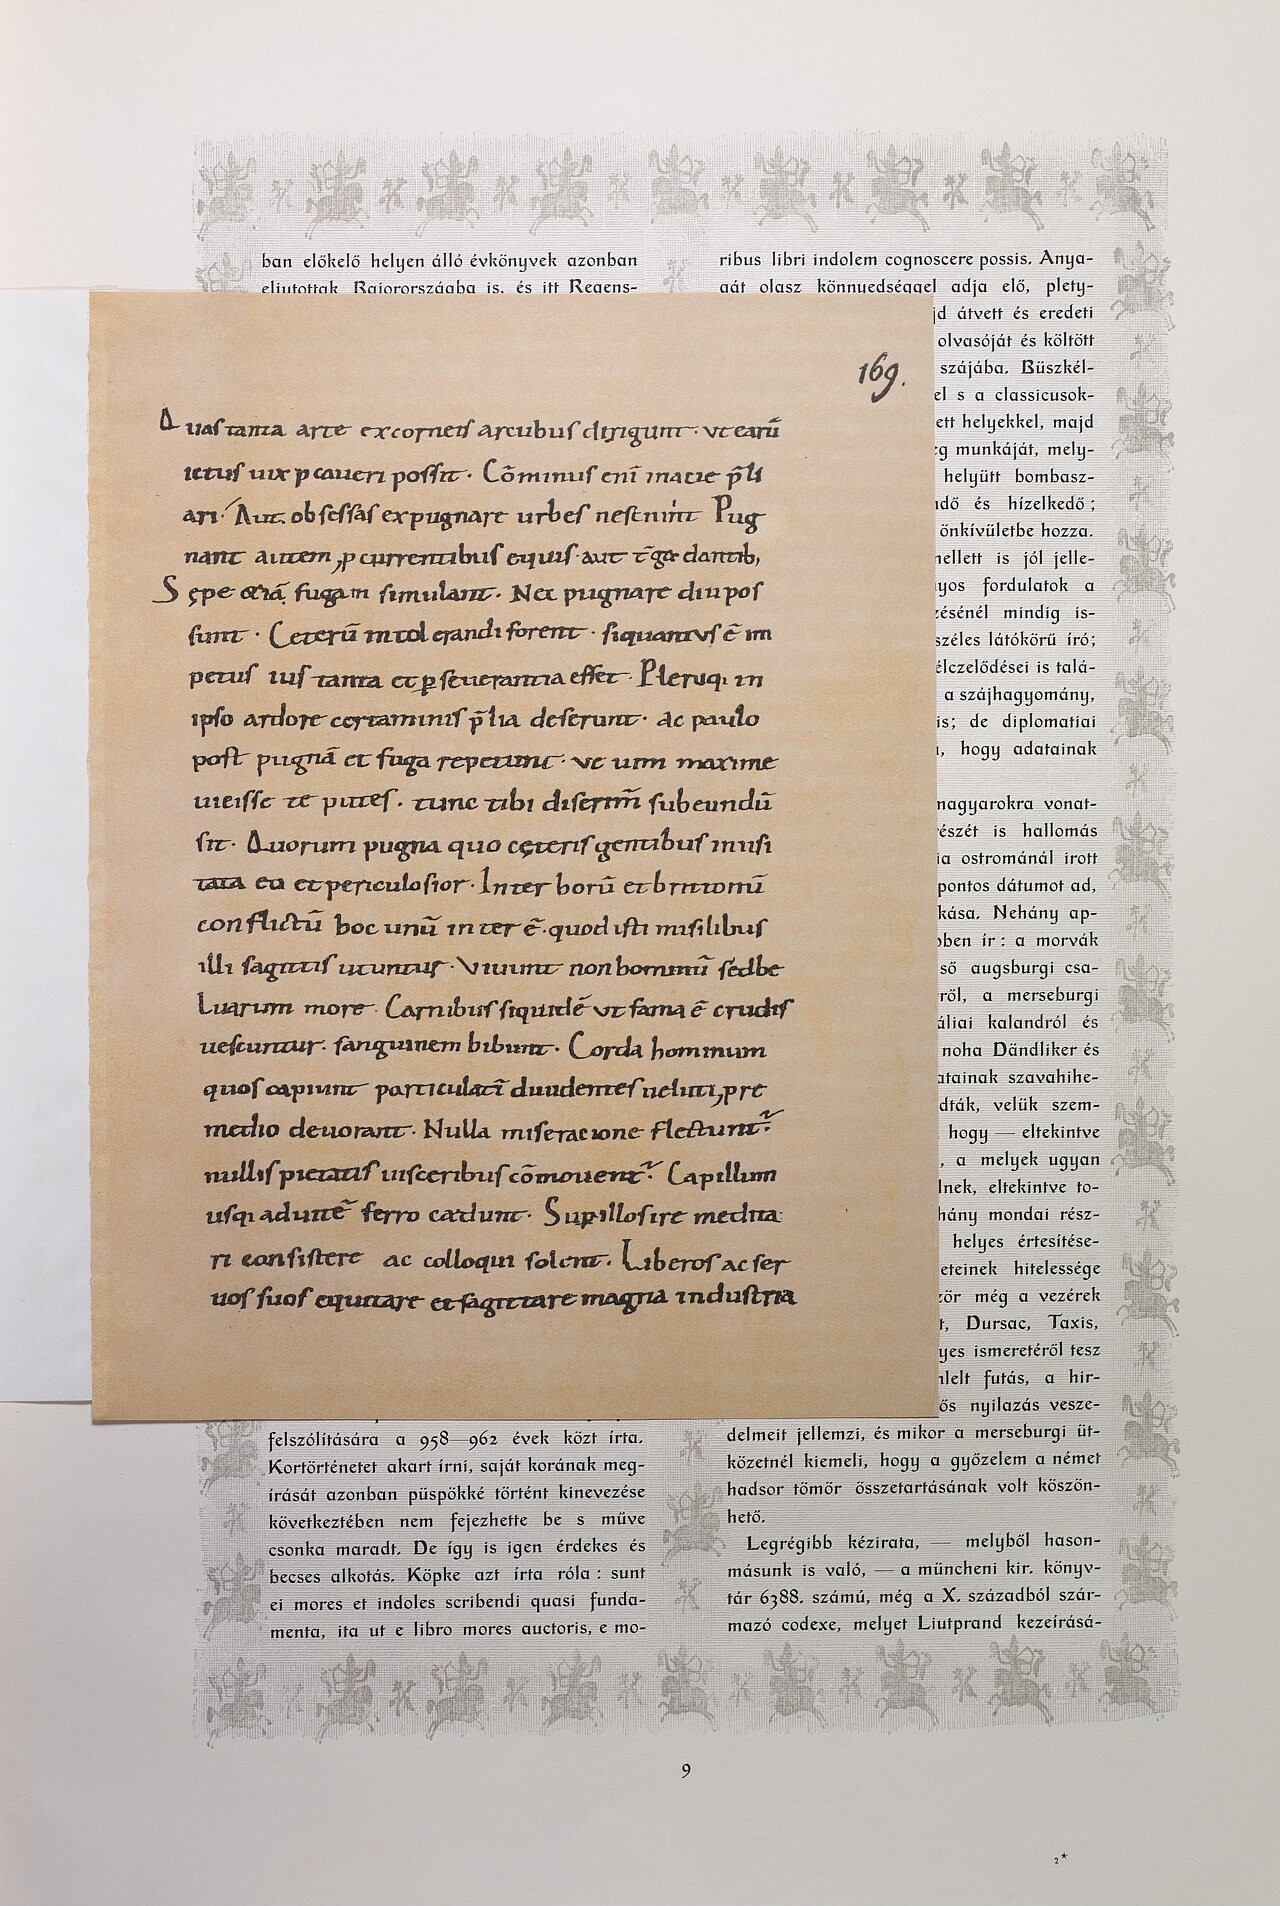 ban előkelő helyen álló évkönyvek azonban
eljutottak Bajorországba is, és itt Regens-
169.
Quas tanta arte ex corneis arcubus dirigunt · vt earū
ictus uix p caueri possit · Cōminus enī
ari · Aut obsessas expugnare urbes nesciunt Pug
nant autem, p currentibus equis · aut t̄ga dantib;
Sępe fugam simulant · Nec pugnare diu pos
sunt · Ceterū intolerandi forent · si quantvs ē im
petus tanta et perseuerantia esset · Pleruq; in
ipso ardore certaminis p̄lia deserunt · ac paulo
post pugnā et fuga repetunt · vt cum maxime
uicisse te putes · tunc tibi discrim̄ subeundū
sit · Quorum pugna quo cęteris gentibus inusi
tata eo et periculosior · Inter horū et brittonū
conflictū hoc unū inter ē · quod isti misilibus
illi sagittis utuntur · Viuunt non hominū sed be
Luarum more · Carnibus siquidē vt fama ē crudis
uescuntur · sanguinem bibunt · Corda hominum
quos capiunt particulatī diuidentes ueluti, p re
medio deuorant · Nulla miseracione flectunt᷑ ·
nullis pietatis uisceribus cōmouent᷑ · Capillum
usq; ad cutē ferro cædunt ·
ri consistere ac colloqui solent · Liberos ac ser
uos suos equitare et sagittare magna industria
felszólítására a 958—962 évek közt írta.
Kortörténetet akart írni, saját korának meg-
írását azonban püspökké történt kinevezése
következtében nem fejezhette be s műve
csonka maradt. De így is igen érdekes és
becses alkotás. Köpke azt írta róla: sunt
ei mores et indoles scribendi quasi funda-
menta, ita ut e libro mores auctoris, e mo-
ribus libri indolem cognoscere possis. Anya-
gát olasz könnyedséggel adja elő, plety-
jd átvett és eredeti
olvasóját és költött
szájába. Büszkél-
el s a classicusok-
ett helyekkel, majd
g munkáját, mely-
helyütt bombasz-
dő és hízelkedő;
önkívületbe hozza.
mellett is jól jelle-
yos fordulatok a
zésénél mindig is-
széles látókörű író;
élczelődései is talá-
a szájhagyomány,
is; de diplomatiai
, hogy adatainak
magyarokra vonat-
részét is hallomás
ia ostrománál írott
pontos dátumot ad,
kása. Nehány ap-
ben ír: a morvák
ső augsburgi csa-
ről, a merseburgi
áliai kalandról és
noha Dändliker és
atainak szavahihe-
dták, velük szem-
hogy — eltekintve
, a melyek ugyan
lnek, eltekintve to-
hány mondai rész-
helyes értesítése-
eteinek hitelessége
ör még a vezérek
t, Dursac, Taxis,
yes ismeretéről tesz
nlelt futás, a hir-
ős nyilazás vesze-
delmeit jellemzi, és mikor a merseburgi üt-
közetnél kiemeli, hogy a győzelem a német
hadsor tömör összetartásának volt köszön-
hető.
Legrégibb kézirata, — melyből hason-
másunk is való, — a müncheni kir. könyv-
tár 6388. számú, még a X. századból szár-
mazó codexe, melyet Liutprand kezeírásá-
9
2*